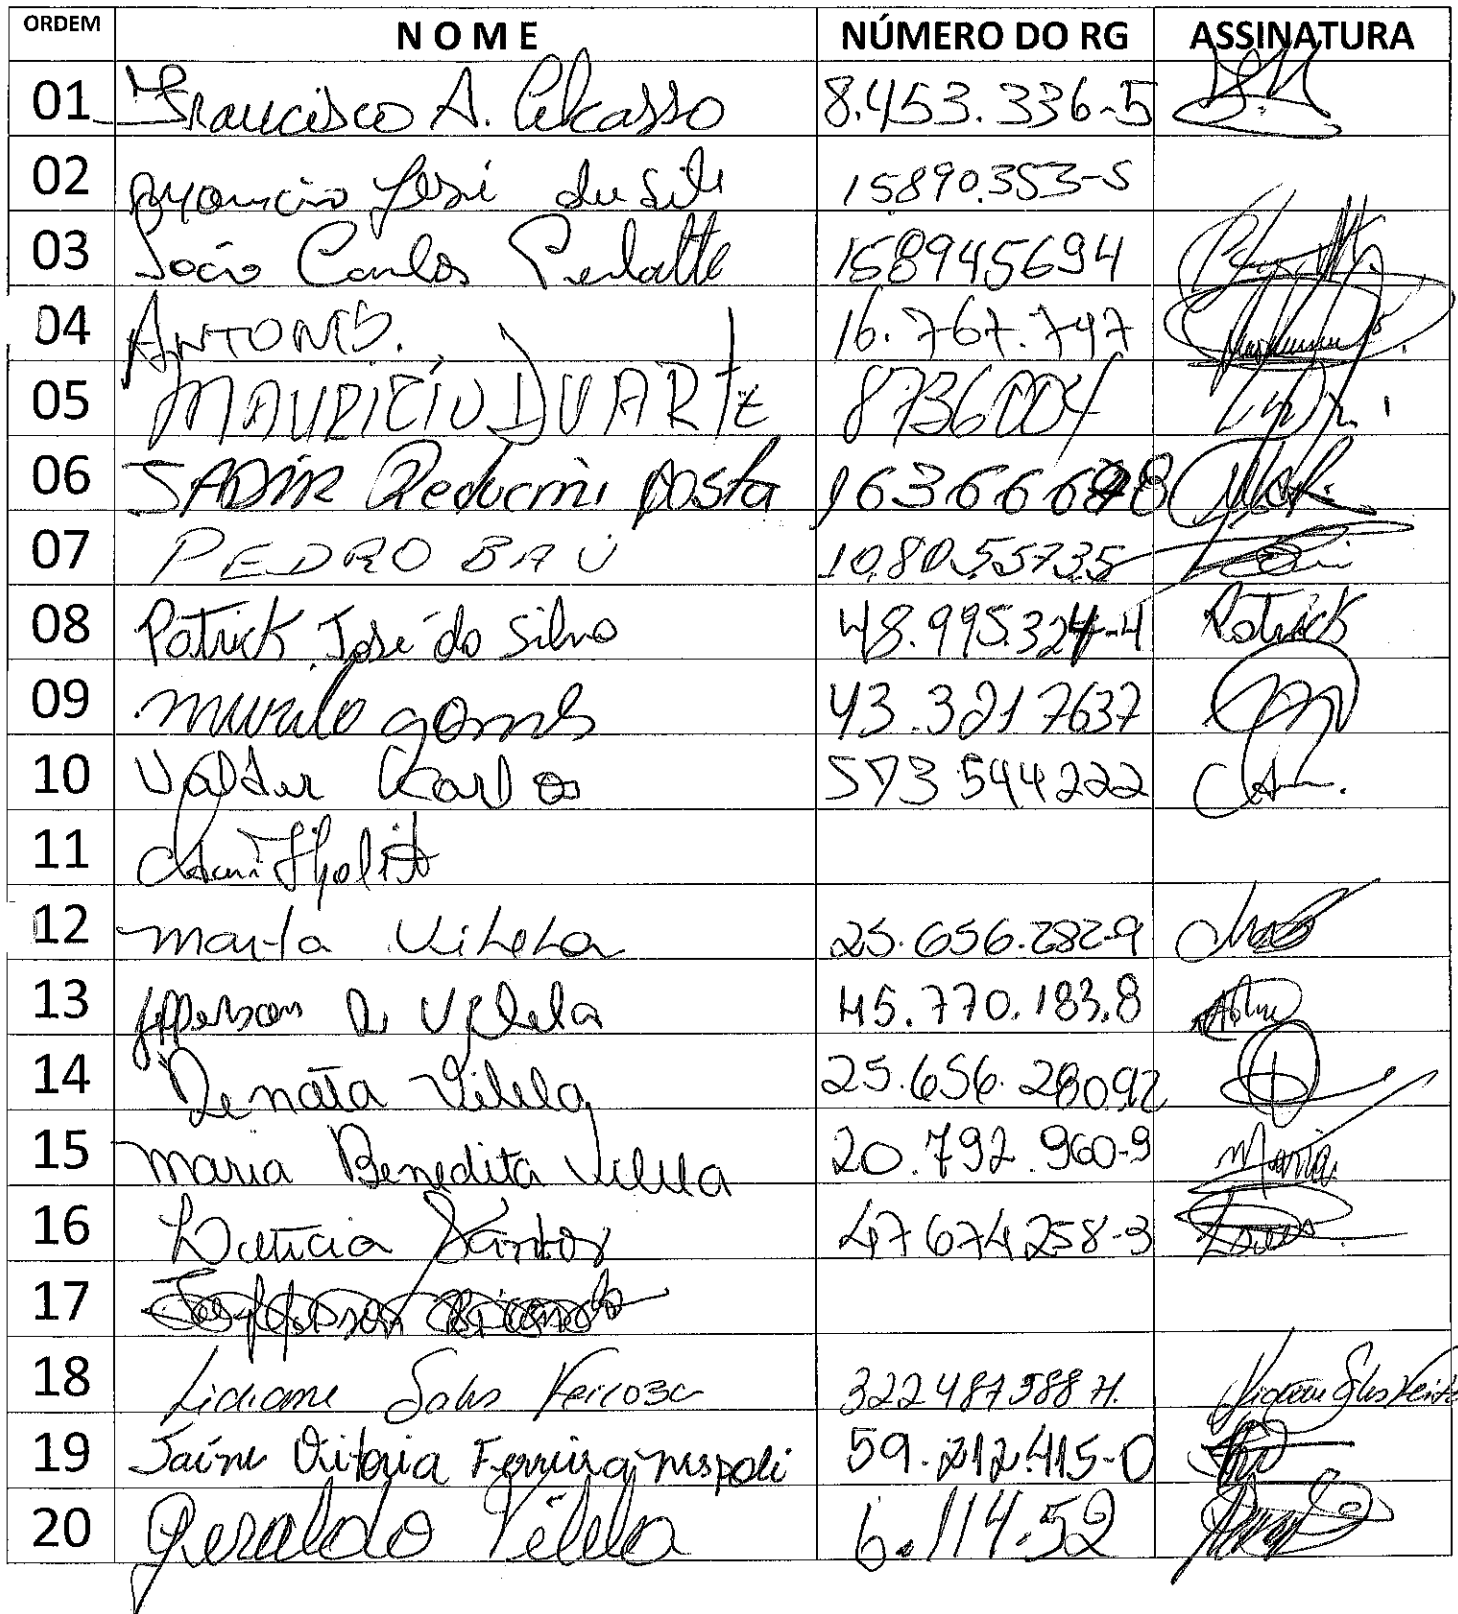 ORDEM NOME NÚMERO DO RG ASSINATURA
01 Francisco A. 8.453.336-5
02 José da 15890.353-5
03 João Carlos 158945694
04 ANTONIO. 16.767.747
05 MAURICIO DUARTE 8736004
06 SADIR Costa
07 PEDRO BAU 10.80.55735
08 Patrick José da Silva 48.995.324-4 Patrick
09 murilo gomes 43.3217637
10 Valdir Carlos 573 544222
11
12 marta Vilela 25.656.282-9
13 Jefferson D. Vilela 45.770.183.8
14 Renata Vilela 25.656.280.92
15 maria Benedita Vilela 20.792.960-9 Maria
16 Leticia Santos 47 674 258-3
17
18 Lidiane Sales 322487588
19 Jaíne Vitoria Ferreira nespoli 59.212.415-0
20 Geraldo Vilela 6.114.52